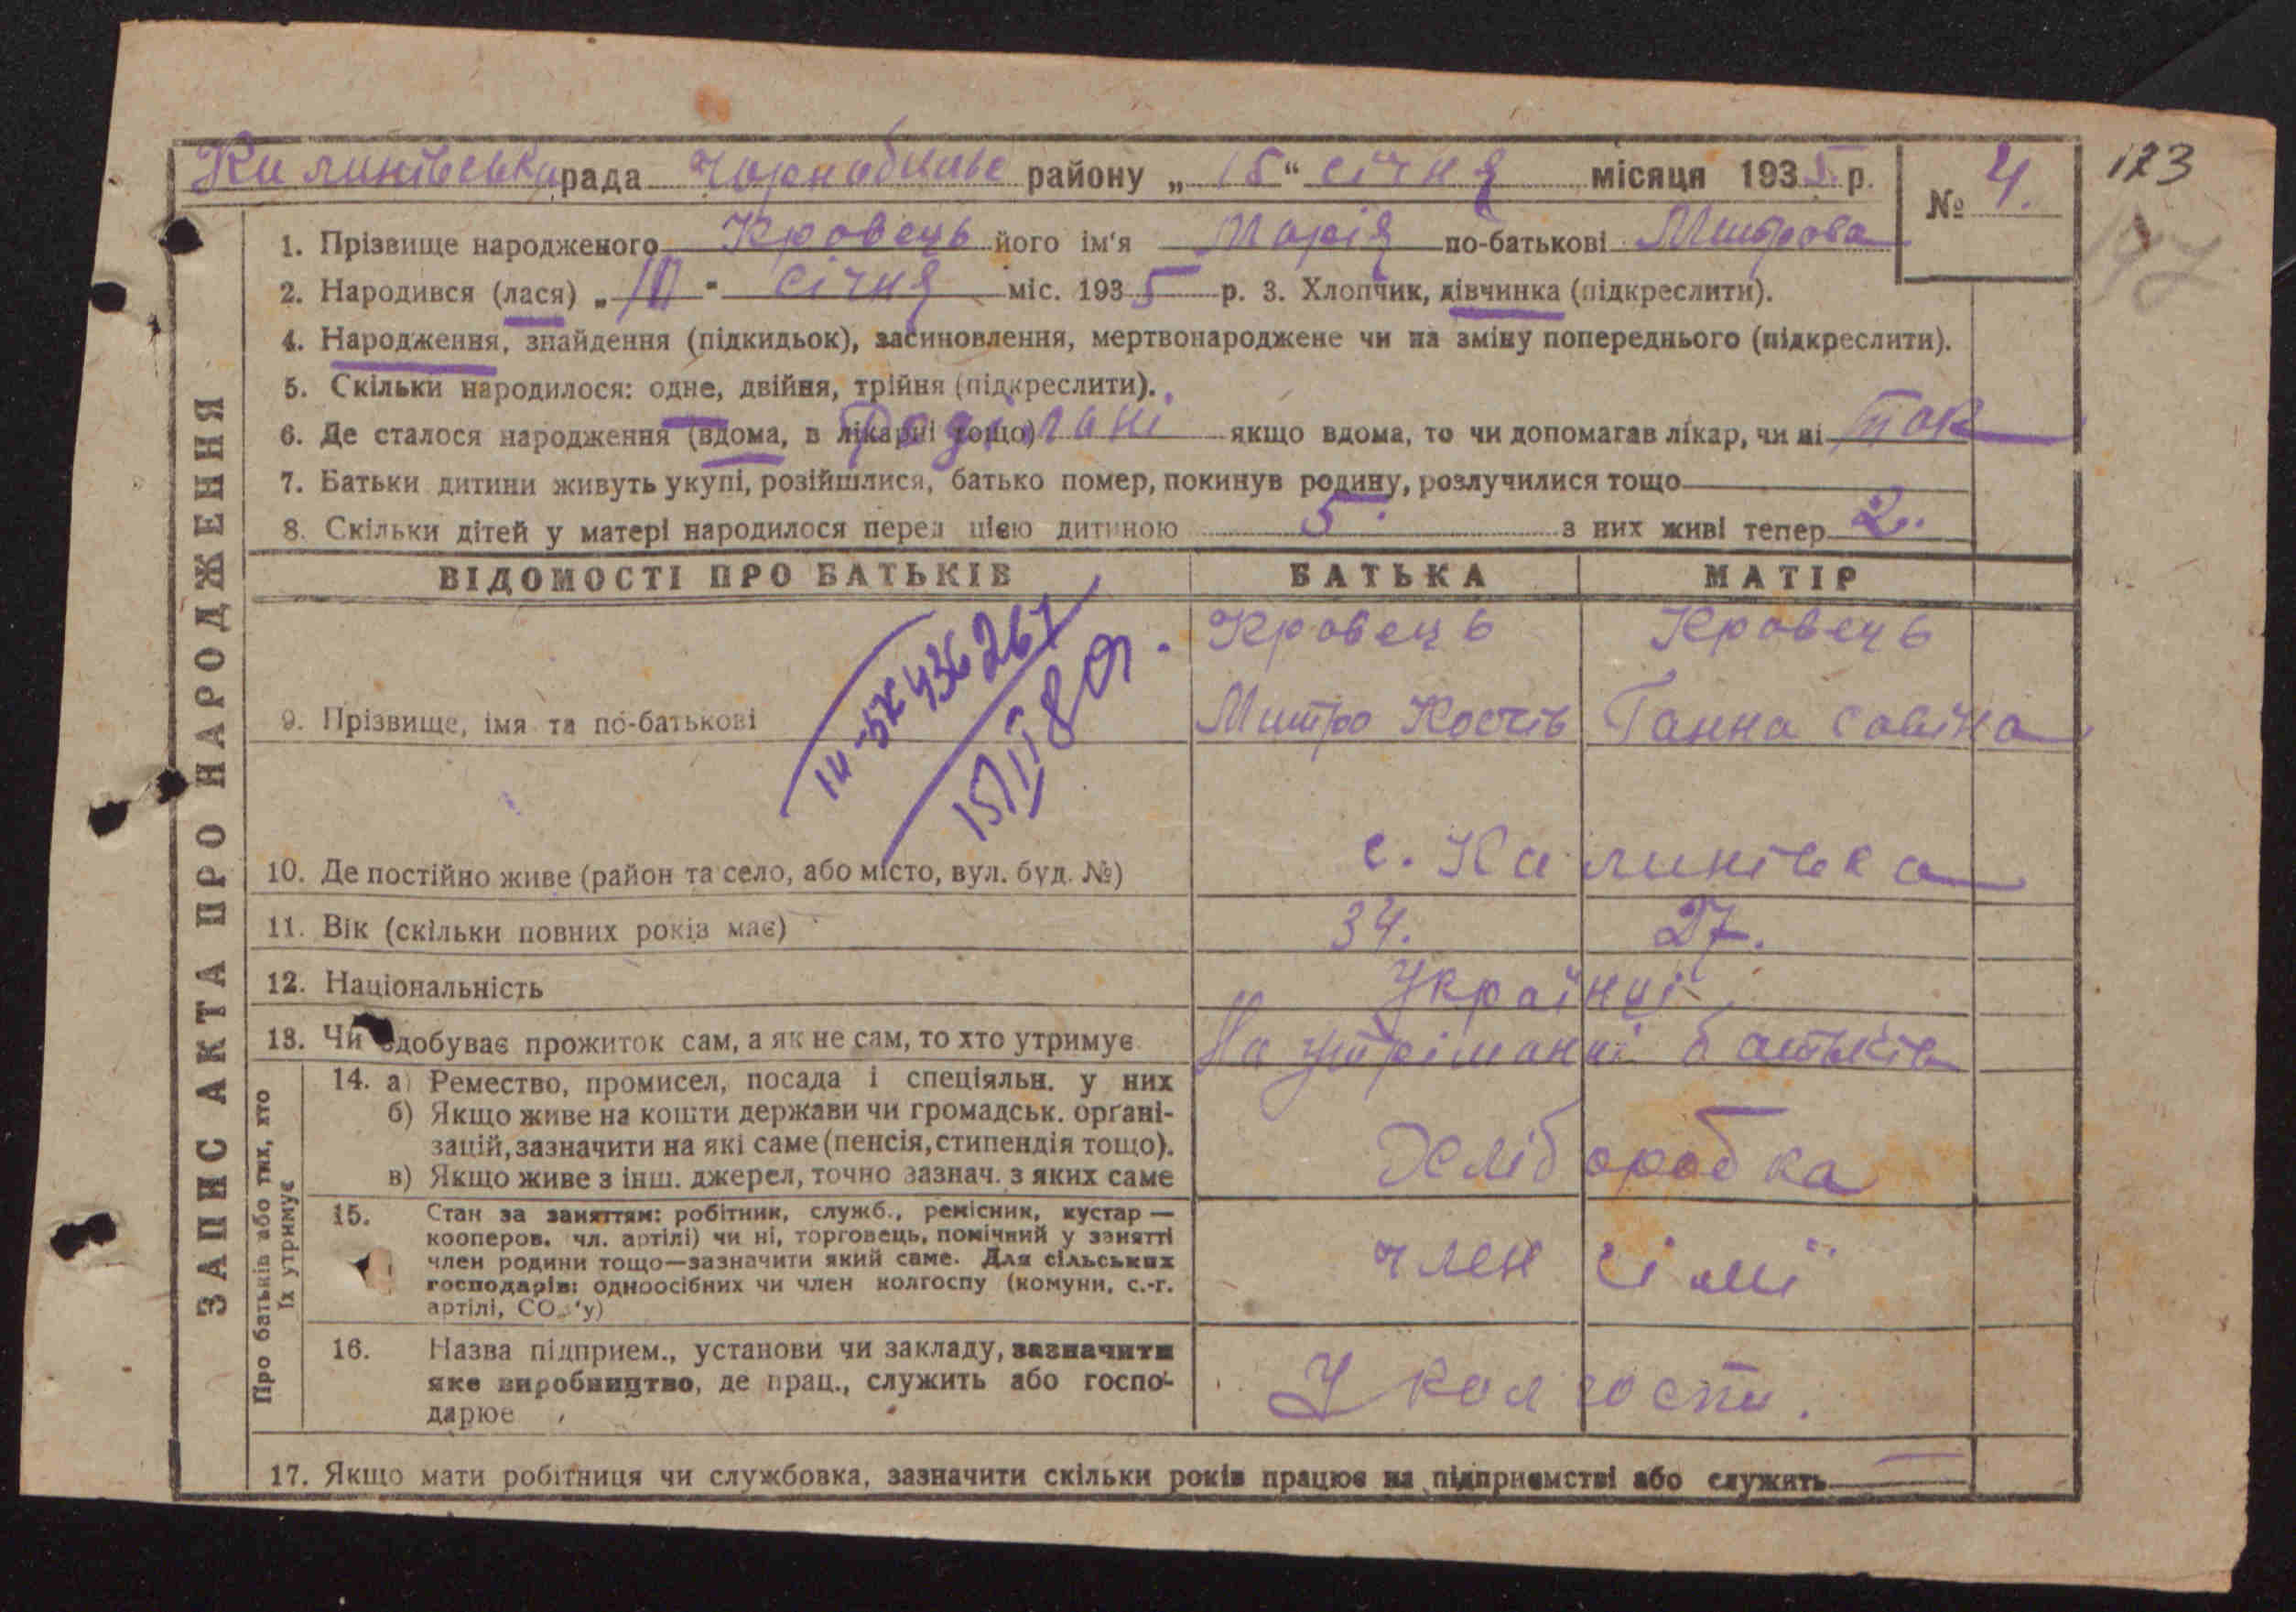 123
рада району „ 15 " січня місяця 1935 р. № 4.
ЗАПИС АКТА ПРО НАРОДЖЕННЯ
1. Прізвище народженого Кровець його ім'я Марія по-батькові Митрова
2. Народився (лася) „ 10 " січня міс. 1935 р. 3. Хлопчик, дівчинка (підкреслити).
4. Народження, знайдення (підкидьок), засиновлення, мертвонароджене чи на зміну попереднього (підкреслити).
5. Скільки народилося: одне, двійня, трійня (підкреслити).
6. Де сталося народження (вдома, в лікарні тощо) якщо вдома, то чи допомагав лікар, чи ні так
7. Батьки дитини живуть укупі, розійшлися, батько помер, покинув родину, розлучилися тощо
8. Скільки дітей у матері народилося перед цією дитиною 5. з них живі тепер 2.
ВІДОМОСТІ ПРО БАТЬКІВ БАТЬКА МАТІР
Кровець Кровець
9. Прізвище, імя та по-батькові Митро Ганна
10. Де постійно живе (район та село, або місто, вул. буд. №) с. Калинівка
11. Вік (скільки повних років має) 34. 27.
12. Національність Українці
13. Чи здобуває прожиток сам, а як не сам, то хто утримує На утріманні батьків
Про батьків або тих, хто їх утримує
14. а) Ремество, промисел, посада і спеціяльн. у них
б) Якщо живе на кошти держави чи громадськ. орґані-
зацій, зазначити на які саме (пенсія, стипендія тощо).
в) Якщо живе з інш. джерел, точно зазнач. з яких саме
Хліборобка
15. Стан за заняттям: робітник, служб., ремісник, кустар —
кооперов. чл. артілі) чи ні, торговець, помічний у занятті
член родини тощо—зазначити який саме. Для сільських
господарів: одноосібних чи член колгоспу (комуни, с.-г.
артілі, СО 'у)
член сімї
16. Назва підприєм., установи чи закладу, зазначити
яке виробництво, де прац., служить або госпо-
дарює
У колгоспі.
17. Якщо мати робітниця чи службовка, зазначити скільки років працює на підприємстві або служить